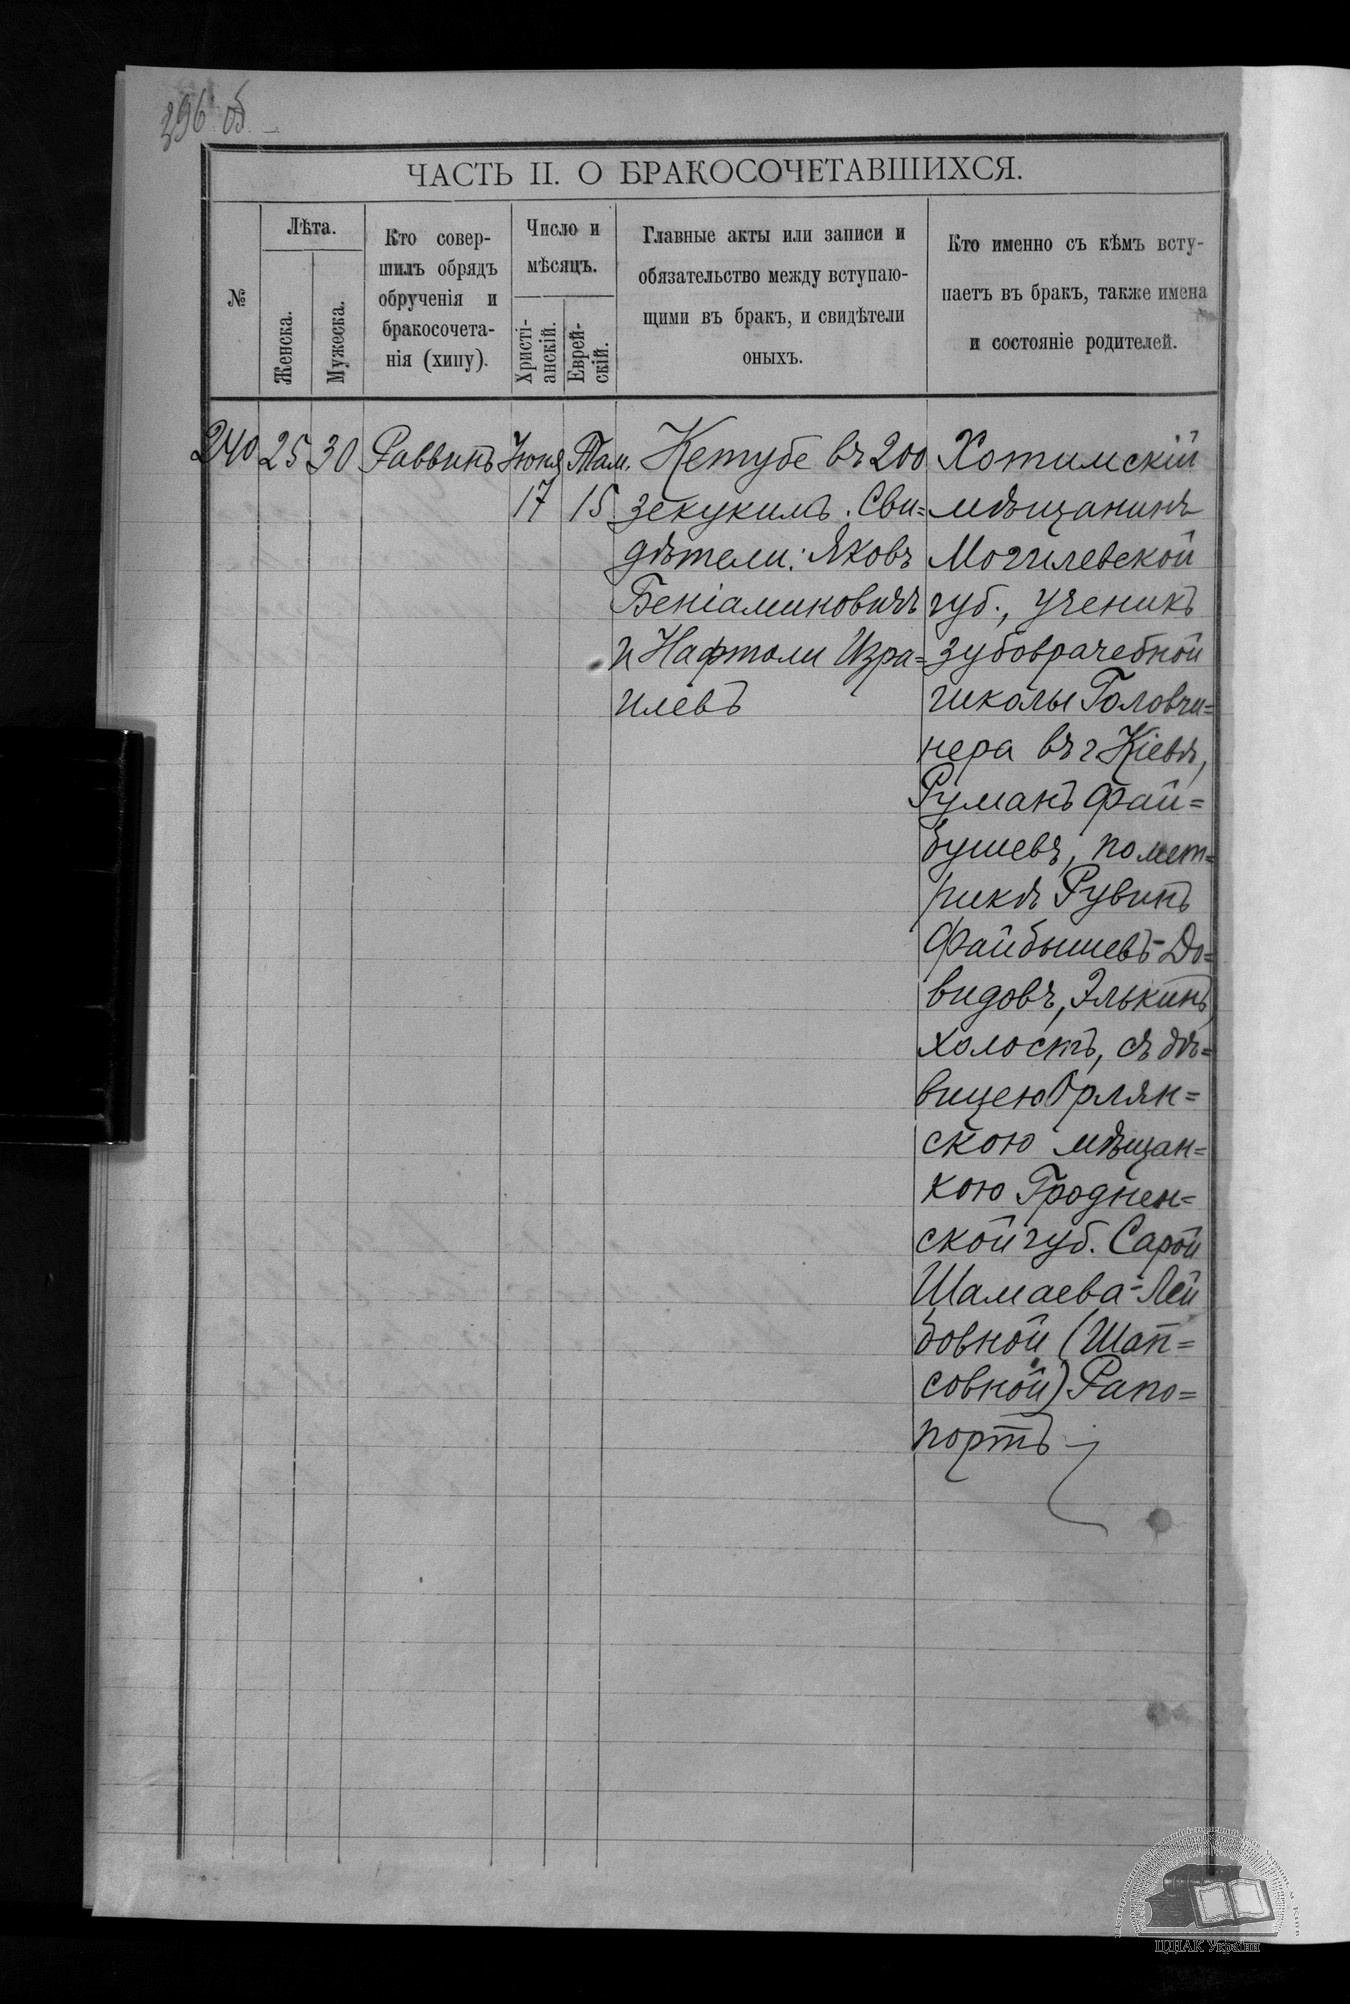 396 об
ЧАСТЬ II. О БРАКОСОЧЕТАВШИХСЯ.
№
Лѣта.
Женска.
Мужеска.
Кто совер-
шилъ обрядъ
обрученія и
бракосочета-
нія (хипу).
Число и
мѣсяцъ.
Христі-
анскій.
Еврей-
скій.
Главные акты или записи и
обязательство между вступаю-
щими въ бракъ, и свидѣтели
оныхъ.
Кто именно съ кѣмъ всту-
паетъ въ бракъ, также имена
и состояніе родителей.
240
25
30
Раввинъ
Июня
17
Там.
15
Кетубе въ 200
зекукимъ. Сви=
дѣтели: Яковъ
Беніаминовичъ
и Нафтоли Изра=
илевъ
Хотимскій
мѣщанинъ
Могилевской
губ., ученикъ
зубоврачебной
школы Головчи=
нера въ г Кіевѣ,
Руманъ Фай=
бушевъ, по мет=
рикѣ Рувинъ
Файбышевъ-До=
видовъ, Элькинъ,
холостъ, съ дѣ=
вицею Орлян=
скою мѣщан=
кою Гроднен=
ской губ. Сарой
Шамаева=Лей
бовной (Шап=
совной) Рапо=
портъ
ЦДІАК України